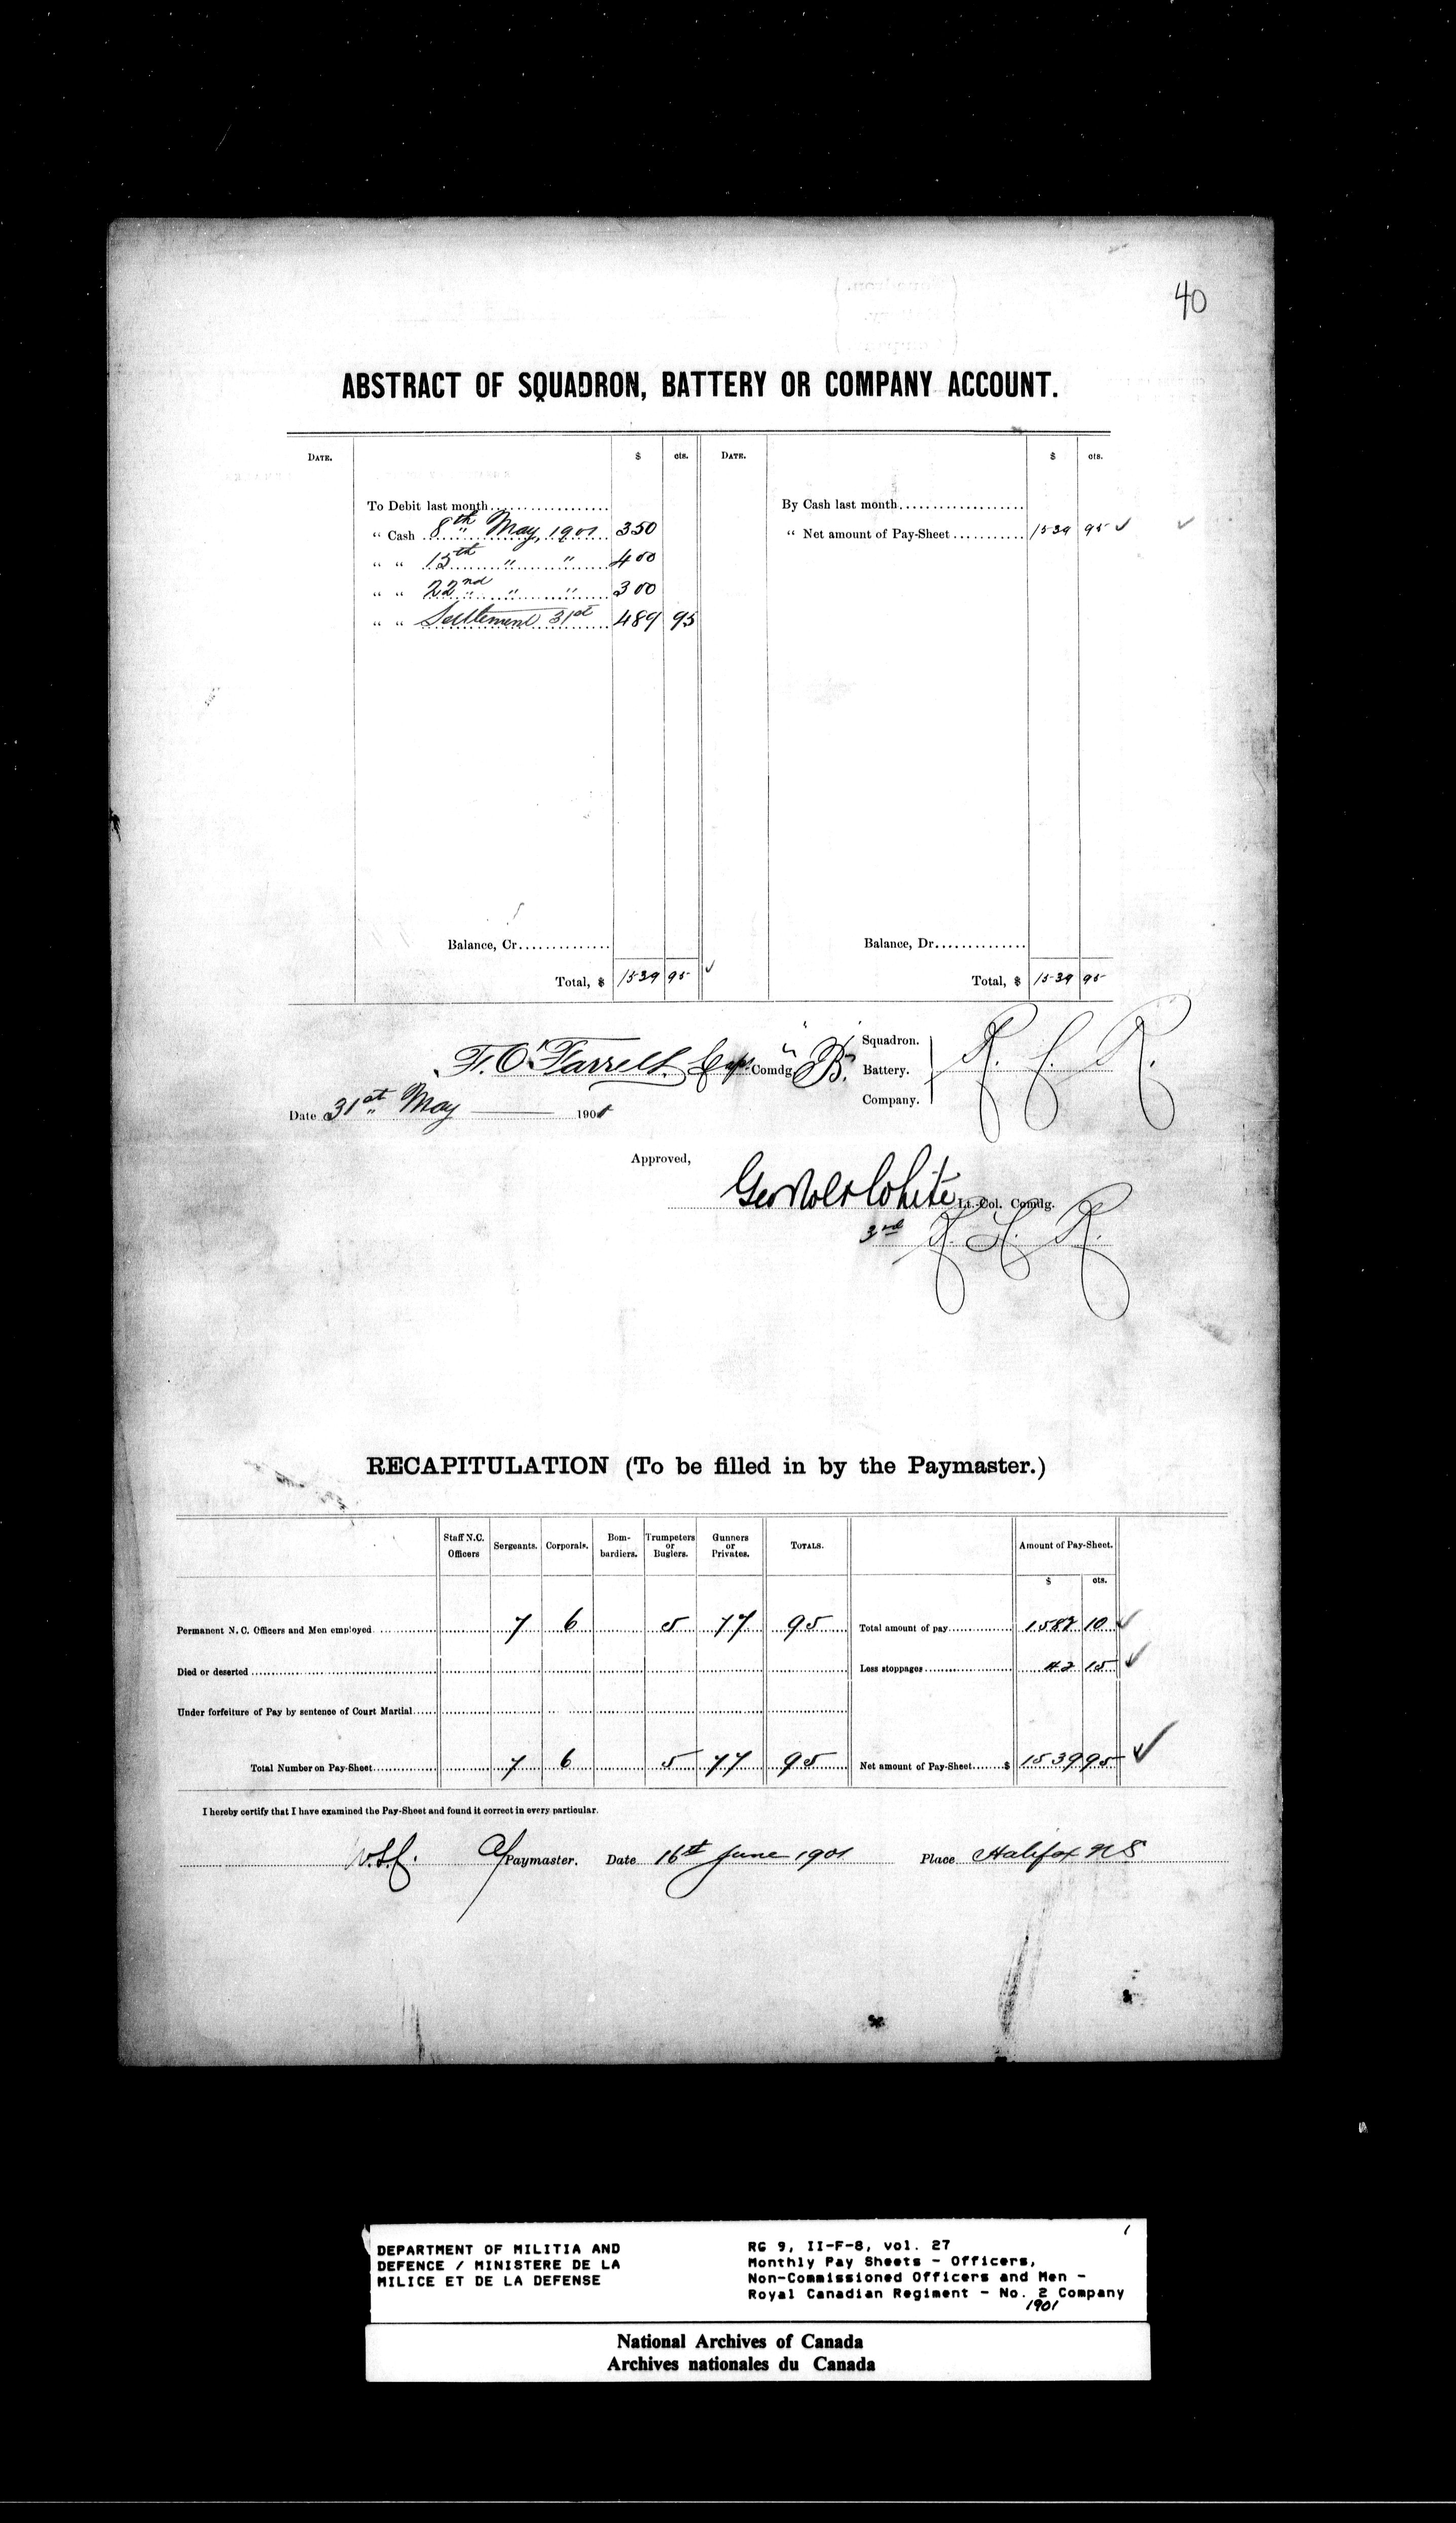 40
ABSTRACT OF SQUADRON, BATTERY OR COMPANY ACCOUNT.
DATE. $ cts. DATE. $ cts.
To Debit last month By Cash last month
" Cash 8th May, 1901 350 " Net amount of Pay-Sheet 1539 95
" " 15th " " 400
" " 22nd " " 300
" " Settlement 31st 489 95
Balance, Cr. Balance, Dr.
Total, $ 1539 95 Total, $ 1539 95
F. O'Farrell Capt. Comdg. "B" Squadron. Battery. Company. R. C. R.
Date 31st May 1901
Approved,
Lt.-Col. Comdg.
3rd R. C. R.
RECAPITULATION (To be filled in by the Paymaster.)
Staff N.C. Officers Sergeants. Corporals. Bombardiers. Trumpeters or Buglers. Gunners or Privates. TOTALS. Amount of Pay-Sheet.
$ cts.
Permanent N. C. Officers and Men employed 7 6 5 77 95 Total amount of pay 1582 10
Died or deserted Less stoppages 42 15
Under forfeiture of Pay by sentence of Court Martial
Total Number on Pay-Sheet 7 6 5 77 95 Net amount of Pay-Sheet $ 1539 95
I hereby certify that I have examined the Pay-Sheet and found it correct in every particular.
Paymaster. Date 16th June 1901 Place Halifax NS
DEPARTMENT OF MILITIA AND
DEFENCE / MINISTERE DE LA
MILICE ET DE LA DEFENSE
RG 9, II-F-8, vol. 27
Monthly Pay Sheets - Officers,
Non-Commissioned Officers and Men -
Royal Canadian Regiment - No. 2 Company
1901
National Archives of Canada
Archives nationales du Canada